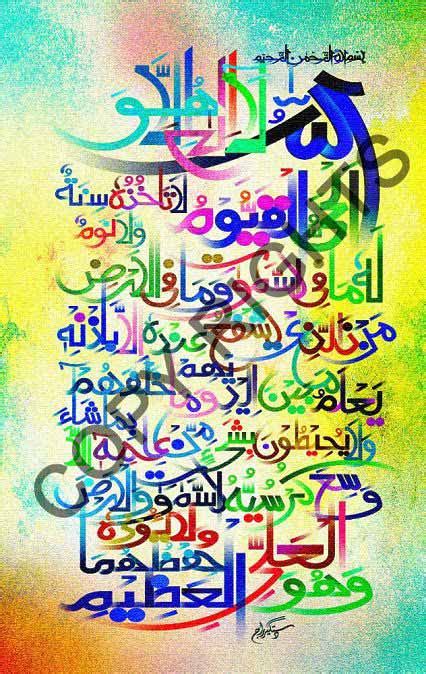 بسم الله الرحمن الرحيم
الله لا إله إلا هو
الحي القيوم لا تأخذه سنة
ولا نوم
له ما في السموت وما في الأرض
من ذا الذي يشفع عنده إلا بإذنه
يعلم ما بين أيديهم وما خلفهم
ولا يحيطون بشيء من علمه إلا بما شاء
وسع كرسيه السموت والأرض
ولا يئوده
حفظهما
وهو العلي العظيم
COPYRIGHTS